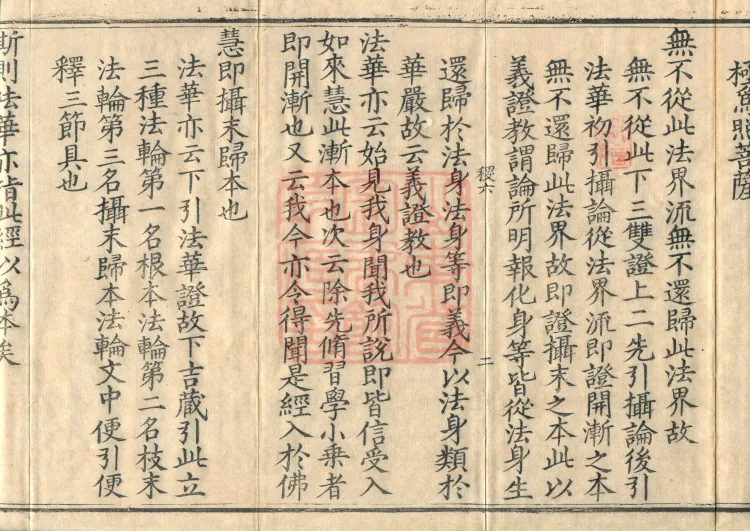 極爲照菩薩
無不從此法界流無不還歸此法界故
無不從此下三雙證上二先引攝論後引
法華初引攝論從法界流即證開漸之本
無不還歸此法界故即證攝末之本此以
義證教謂論所明報化身等皆從法身生
稷六
二
還歸於法身法身等即義今以法身類於
華嚴故云義證教也
法華亦云始見我身聞我所說即皆信受入
如來慧此漸本也次云除先脩習學小乗者
即開漸也又云我今亦令得聞是經入於佛
慧即攝末歸本也
法華亦云下引法華證故下吉藏引此立
三種法輪第一名根本法輪第二名枝末
法輪第三名攝末歸本法輪文中便引便
釋三節具也
斯則法華亦指此經以爲本矣